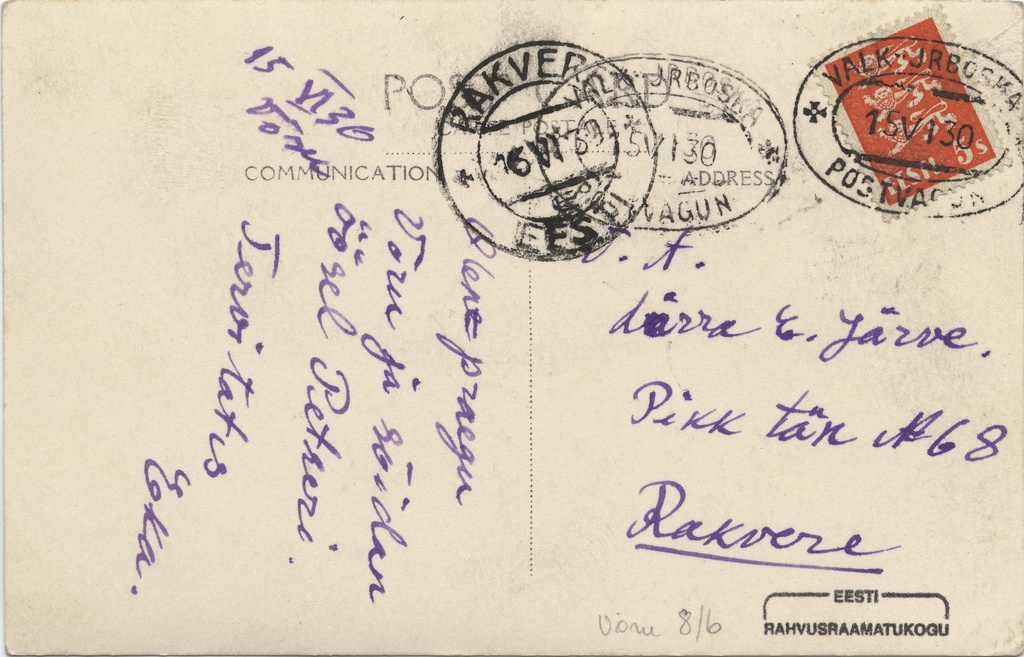 POST CARD
COMMUNICATION
ADDRESS
RAKVERE
EESTI
VALK-IRBOSKA
15 VI 30
POSTVAGUN
VALK-IRBOSKA
15 VI 30
POSTVAGUN
EESTI 5s
15 VI 30
Võru
Olen praegu
Võru ja sõidan
öösel Petseri.
Tervitates
Eka.
E. Järve.
Pikk tän № 68
Rakvere
Võru 8/6
EESTI
RAHVUSRAAMATUKOGU